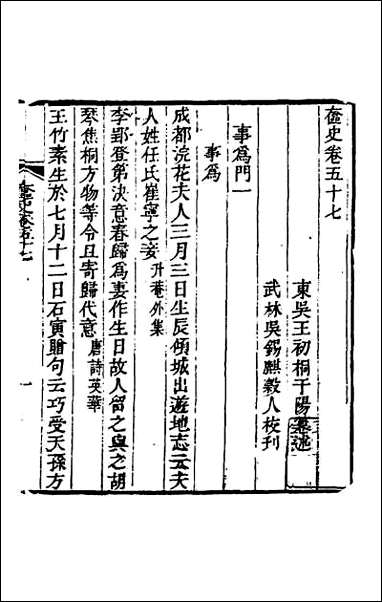 奩史卷五十七
東吳王初桐于陽纂述
武林吳錫麒穀人校刊
事為門一
事為
成都浣花夫人三月三日生辰傾城出遊地志云夫
人姓任氏崔寧之妾升菴外集
李郢登第決意春歸為妻作生日故人留之與之胡
琴焦桐方物等令且寄歸代意唐詩英華
王竹素生於七月十二日石寅贈句云巧受天孫方
奩史卷五十七
一